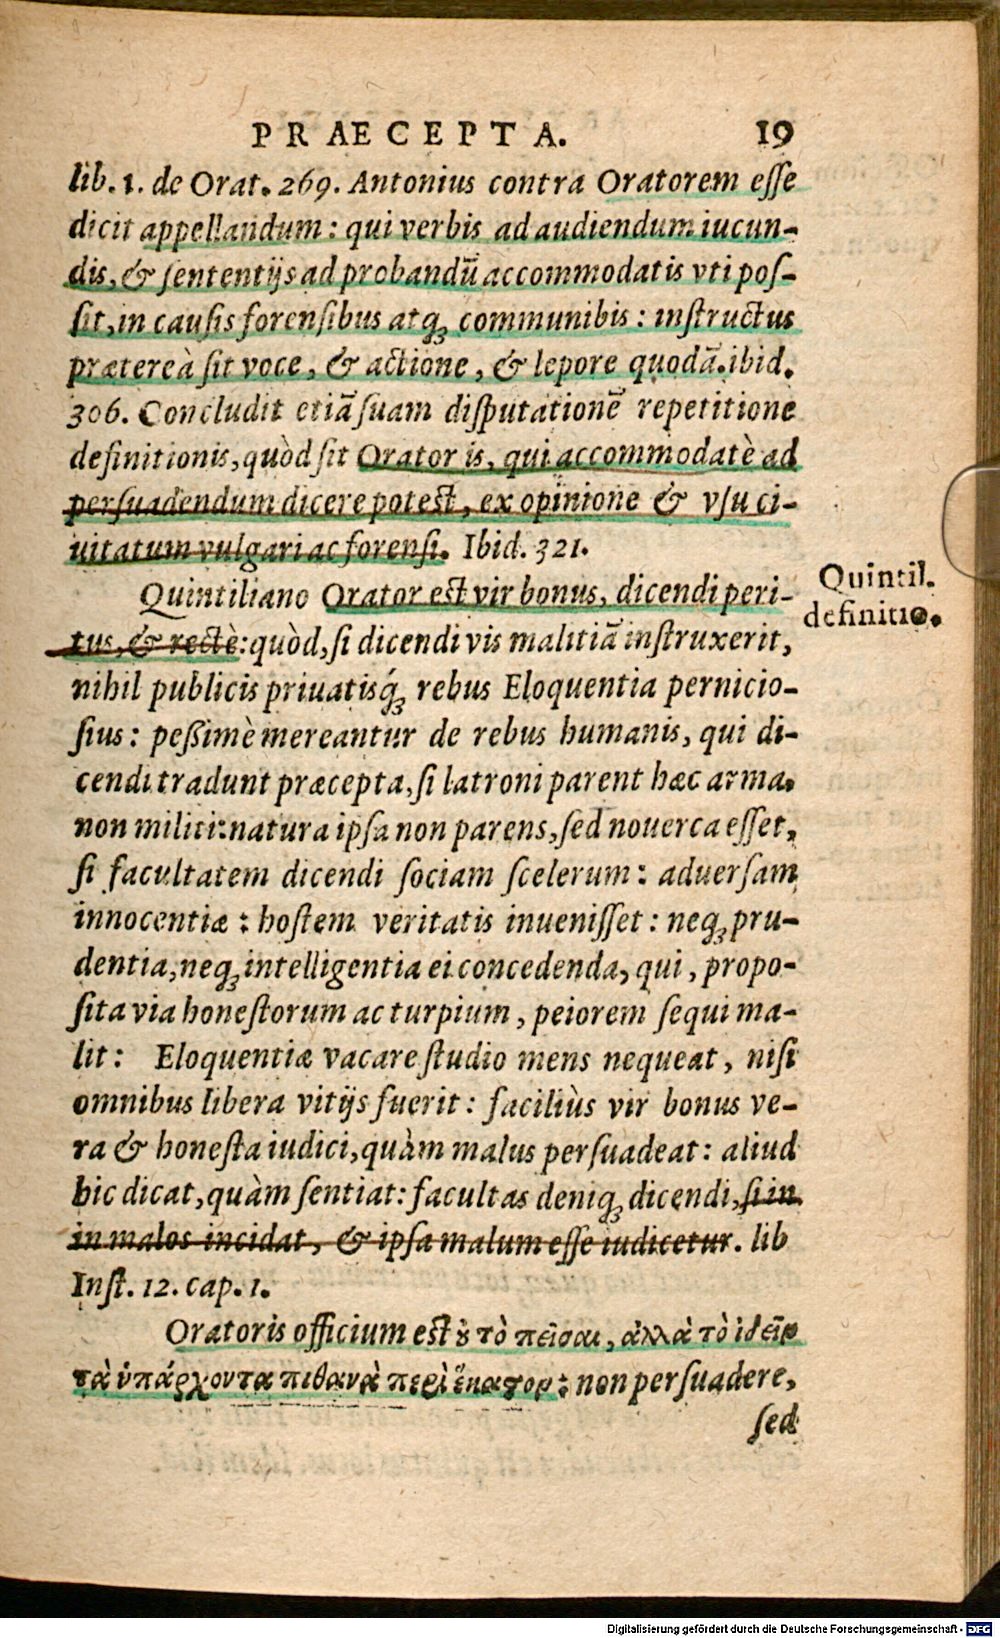 PRAECEPTA. 19
lib. 1. de Orat. 269. Antonius contra Oratorem esse
dicit appellandum: qui verbis ad audiendum iucun-
dis, & sententijs ad probandū accommodatis vti pos-
sit, in causis forensibus atq; communibis: instructus
prætereà sit voce, & actione, & lepore quodā. ibid.
306. Concludit etiā suam disputationē repetitione
definitionis, quòd sit Orator is, qui accommodatè ad
persuadendum dicere potest, ex opinione & vsu ci-
uitatum vulgari ac forensi. Ibid. 321.
Quintiliano Orator est vir bonus, dicendi peri-
tus, & rectè: quòd, si dicendi vis malitiā instruxerit,
Quintil.
definitio.
nihil publicis priuatisq́; rebus Eloquentia pernicio-
sius: peßimè mereantur de rebus humanis, qui di-
cendi tradunt præcepta, si latroni parent hæc arma.
non militi: natura ipsa non parens, sed nouerca esset,
si facultatem dicendi sociam scelerum: aduersam
innocentiæ: hostem veritatis inuenisset: neq; pru-
dentia, neq; intelligentia ei concedenda, qui, propo-
sita via honestorum ac turpium, peiorem sequi ma-
lit: Eloquentiæ vacare studio mens nequeat, nisi
omnibus libera vitijs fuerit: faciliùs vir bonus ve-
ra & honesta iudici, quàm malus persuadeat: aliud
hic dicat, quàm sentiat: facultas deniq; dicendi, si in
in malos incidat, & ipsa malum esse iudicetur. lib
Inst. 12. cap. 1.
Oratoris officium est ȣ τὸ πεῖσαι, ἀλλὰ τὸ ἰδεῖν
τὰ ὑπάρχοντα πιθανὰ περὶ ἕκαστον: non persuadere,
sed
Digitalisierung gefördert durch die Deutsche Forschungsgemeinschaft - DFG